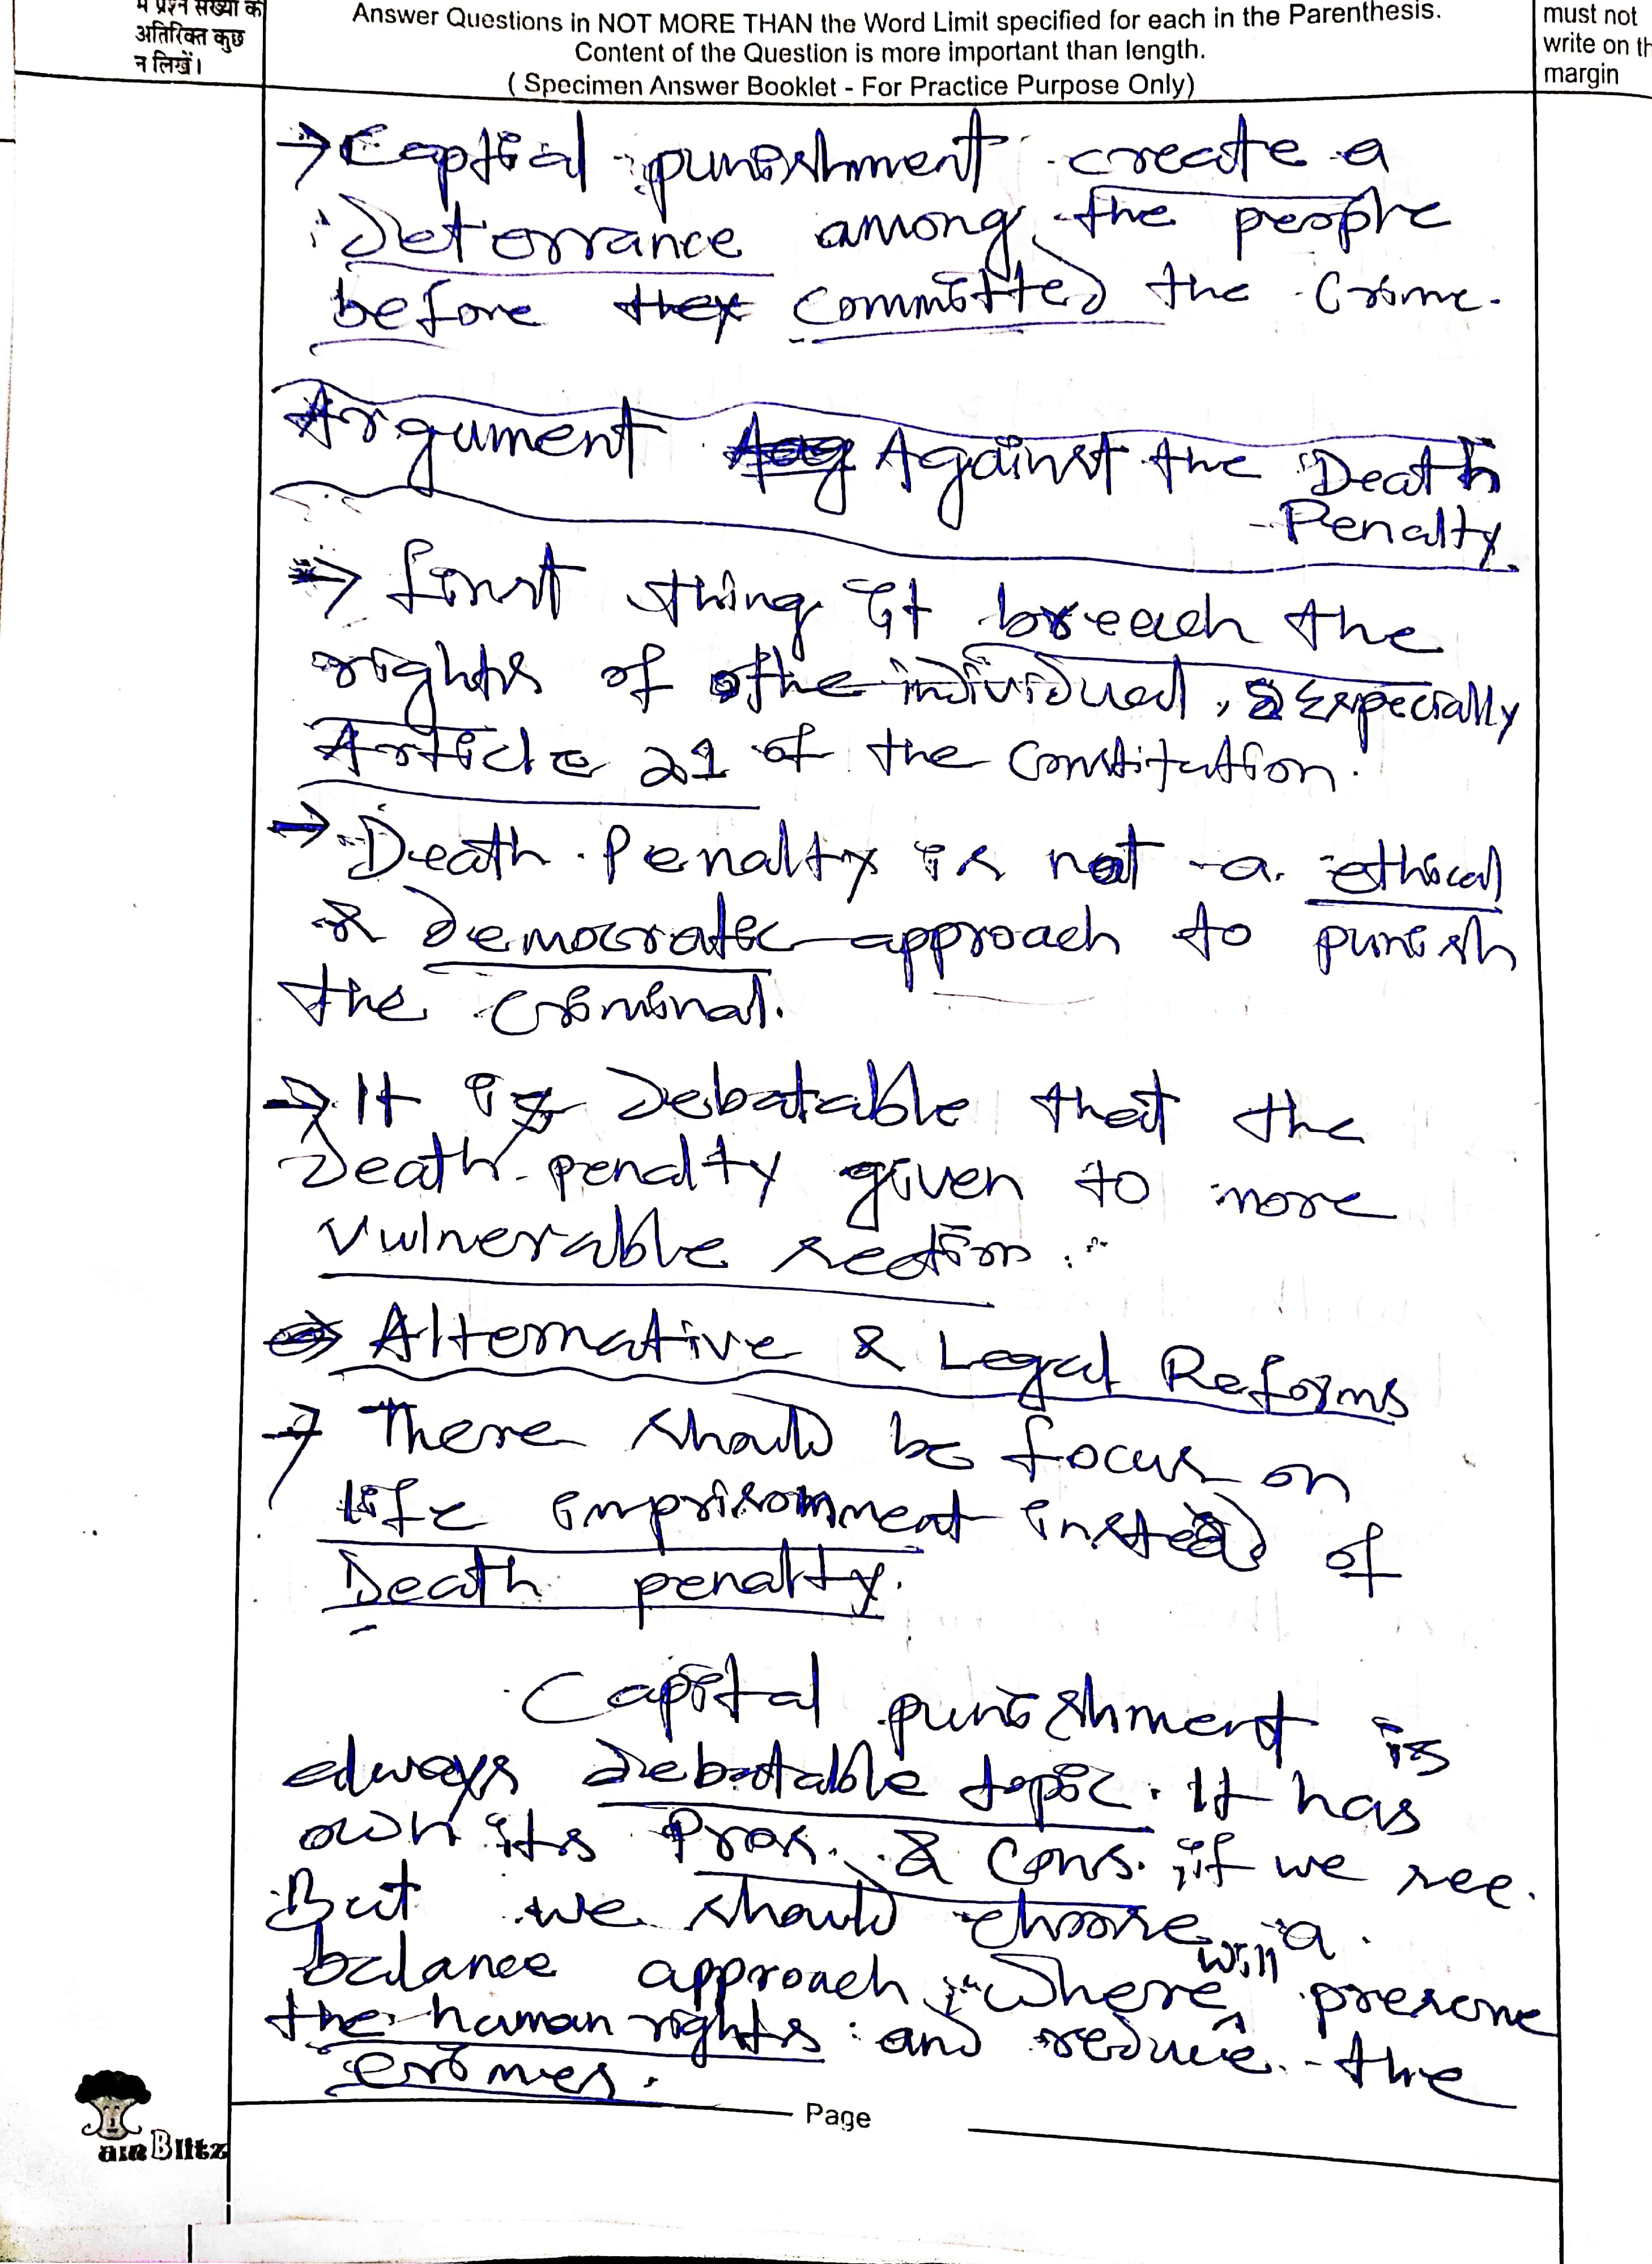 में प्रश्न संख्या के
अतिरिक्त कुछ
न लिखें।
Answer Questions in NOT MORE THAN the Word Limit specified for each in the Parenthesis.
Content of the Question is more important than length.
( Specimen Answer Booklet - For Practice Purpose Only)
must not
write on th
margin
→ Captial punishment create a
Deterrance among the people
before they committed the Crime.
Argument Against the Death
Penalty.
→ first thing it breach the
rights of the individual, Especially
Article 21 of the Constitution.
→ Death Penalty is not a ethical
& Democratic approach to punish
the Criminal.
→ It is Debatable that the
Death penalty given to more
vulnerable section.
⇒ Alternative & Legal Reforms
→ There should be focus on
life imprisomment instead of
Death penalty.
Capital punishment is
always debatable topic. It has
own its Pros. & Cons. if we see.
But we should choose a
balance approach, where will preserve
the human rights and reduce the
crimes.
Page
Blitz